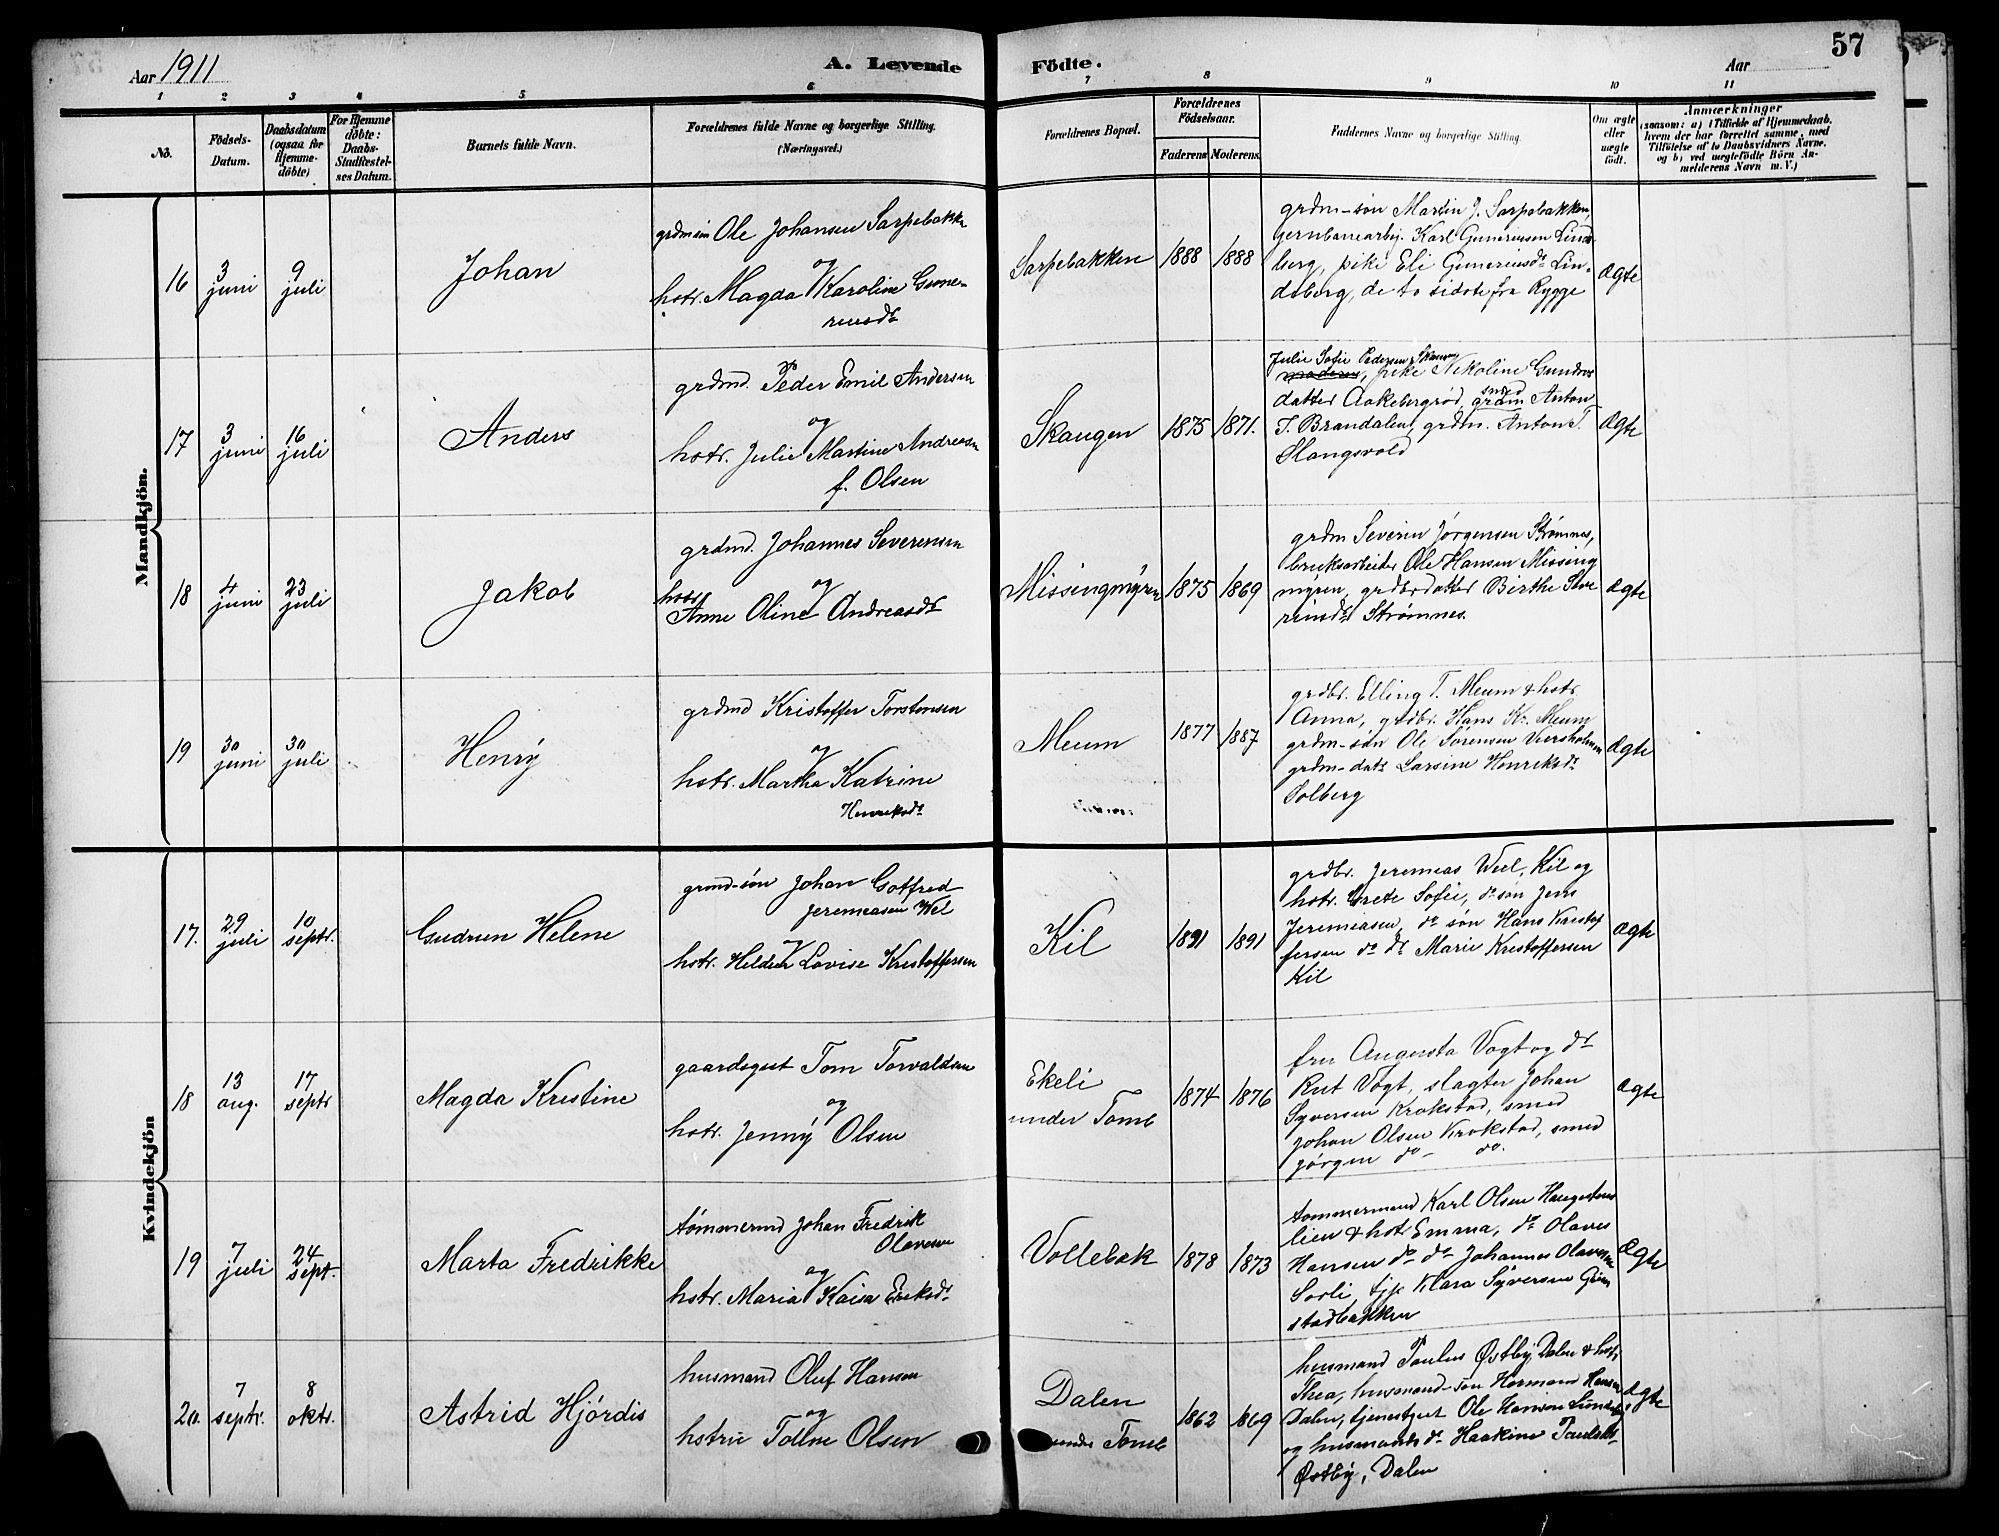 57
Aar 1911
A. Levende Fødte.
Aar
1 2 3 4 5 6 7 8 9 10 11
No.
Födsels-Datum.
Daabsdatum (ogsaa for Hjemmedöbte)
For Hjemmedöbte: Daabs-Stadfestelses Datum.
Barnets fulde Navn.
Forældrenes fulde Navne og borgerlige Stilling. (Næringsvei.)
Forældrenes Bopæl.
Forældrenes Födselsaar.
Faderens Moderens
Faddernes Navne og borgerlige Stilling.
Om ægte eller uægte født.
Anmærkninger
(saasom: a) i Tilfælde af Hjemmedaab, hvem der har forrettet samme, med Tilföielse af to Daabsvidners Navne, og b) ved uægtefödte Börn Anmelderens Navn m. V.)
Mandkjön.
16
3 juni
9 juli
Johan
Ole Johansen Sarpebakke
og
hstr. Magda Karoline Gune-
riusdt
Sarpebakken
1888
1888
grdm-søn Martin J. Sarpebakken,
jernbanearbj. Karl Guneriusen Lind-
berg, pike Eli Guneriusdt Lin-
dberg, de to sidste fra Rygge
ægte
17
3 juni
16 juli
Anders
grdmd. Peder Emil Andersen
og
hstr. Julie Martine Andreasn
f. Olsen
Skaugen
1875
1871.
Julie Sofie Pedersen Skaugen
pike Nikoline Gundros
datter Aakebergrød, smed Anton
T. Brandalen, grdm. Anton T.
Slangsvold
ægte
18
4 juni
23 juli
Jakob
grdmd. Johannes Severensen
og
hstr
Anne Oline Andreasdt
Missingmyren
1875
1869
grdm Severin Jørgensen Strømnes,
bruksarbeider Ole Hansen Missing
myren, grdbrdatter Birthe Seve
rinsdt Strømnes.
ægte
19
30 juni
30 juli
Henry
grdmd Kristoffer Torstensen
og
hstr. Martha Katrine
Henriksdt
Meum
1877
1887
grdbr. Elling T. Meum & hstr.
Anna, grdbr. Hans Kr. Meum
grdm-søn Ole Sørensen
grdm-datt Larsine Henriksdt
Solberg
ægte
Kvindekjön
17.
29 juli
10 septr.
Gudrun Helene
grmd-søn Johan Gotfred
Jeremiasen Wel
hstr. Lovise Kristoffersen
Kil
1891
1891
grdbr. Jeremias Weel, Kil og
hstr. Grete Sofie, do søn Jens
Jeremiasen, do søn Hans Kristof
fersen do dt Marie Kristoffersen
Kil
ægte
18
13 aug.
17 septr
Magda Kristine
gaardsgut Tom Torvaldsen
og
hstr. Jenny Olsen
Ekeli
under Tomb
1874
1876
fru Augusta Vogt og dt
Rut Vogt, slagter Johan
Syversen Krokstad, smed
Johan Olsen Krokstad, smed
Jørgen do — do.
ægte
19
7 juli
24 sept.
Marta Fredrikke
tømmermd Johan Fredrik
Olavesen
og
hstr. Maria Kaisa Eriksdt
Vollebæk
1878
1873
tømmermand Karl Olsen
lien & hst Emma, do Olaves
Hansen do do Johannes Olavesen
Sorli, tjp Klara Syversen Grim
stadbakken
ægte
20.
7 septr.
8 oktr.
Astrid Hjørdis
husmand Oluf Hansen
og
hstrü Olsen
Dalen
under Tomb
1862
1869
husmand Paulus Østby, Dalen & hstr.
Thea, husmand-søn Herman Hansen
Dalen, tjenestgut Ole Hansen
og husmands dt Haakine Paulsdt
Østby, Dalen
ægte